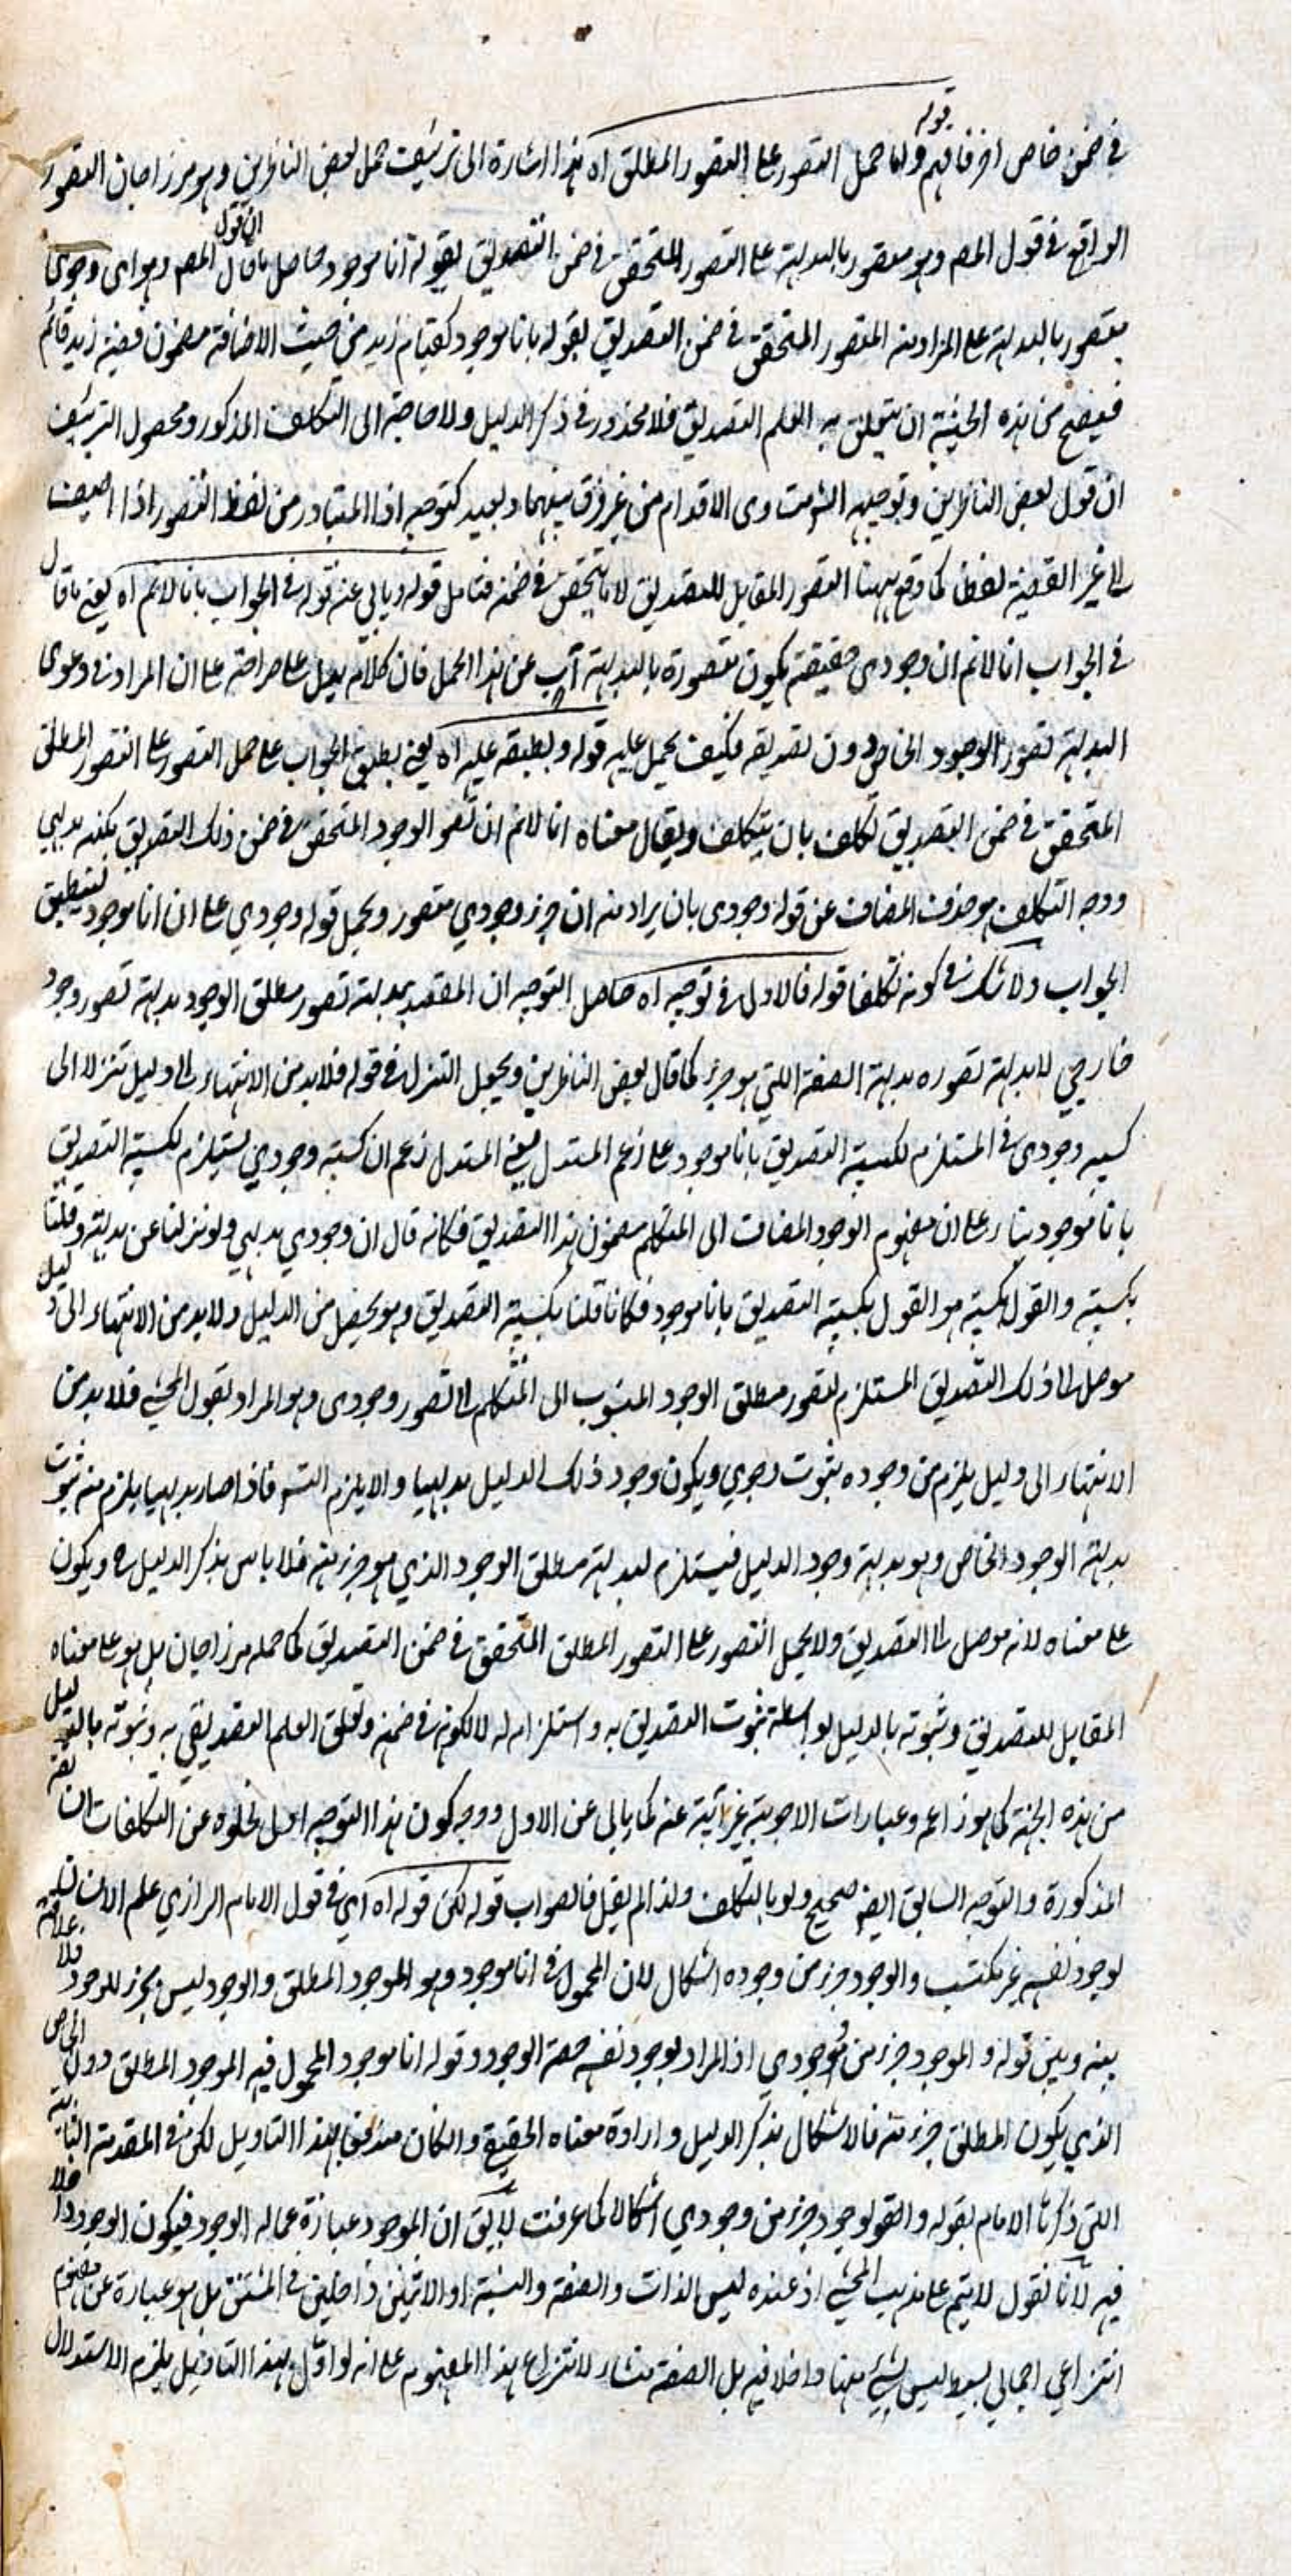 في ضمن خاص اخر فافهم قوله واما حمل التصور على التصور المطلق اه هذا اشارة الى تزييف حمل بعض الناظرين وهو مرزاجان التصور
الواقع في قول المص وهو متصور بالبديهة على التصور المتحقق في ضمن التصديق بقوله انا موجود حاصل ان قول المص وهو اى وجودى
متصور بالبديهة على المراد منه المتصور المتحقق في ضمن التصديق بقوله بانا موجود كقيام زيد من حيث الاضافة مضمون قضية زيد قائم
فيصح من هذه الحيثية ان يتعلق به العلم التصديق فلا محذور في ذكر الدليل ولا حاجة الى التكلف المذكور ومحصول التزييف
ان قول بعض الناظرين وتوجيهه متساوى الاقدام من غير فرق بينهما وبعيد كتوجيه اذ المتبادر من لفظ التصور اذا اضيف
الى غير القضية لفظا كما وقع ههنا التصور المقابل للتصديق لا ما يتحقق في ضمنه فتامل قوله ويابى عنه قوله في الجواب بانا لانم اه يعني ما قال
في الجواب انا لانم ان وجودى حقيقة يكون متصورة بالبديهة آب عن هذا الحمل فان كلامه يدل على صراحة على ان المراد في دعوى
البديهة تصور الوجود الخاص دون تصديقه فكيف يحمل عليه قوله وتطبيقه عليه اه يعني تطبيق الجواب على حمل التصور على التصور المطلق
المتحقق في ضمن التصديق تكلف بان يتكلف ويقال معناه انا لانم ان تصور الوجود المتحقق في ضمن ذلك التصديق بكنهه بديهي
ووجه التكلف هو حذف المضاف عن قوله وجودى بان يراد منه ان جزء وجودي متصور ويحمل قوله وجودي على ان انا موجود لتطبيق
الجواب ولا شك في كونه تكلفا قوله فالاولى في توجيه اه حاصل التوجيه ان المقصد بديهة تصور مطلق الوجود بديهة تصور وجود
خارجي لا بديهة تصوره بديهة الصفة اللتي هو جزء كما قال بعض الناظرين ويجعل التنزل في قوله فلا بد من الانتهاء الى دليل تنزلا الى
كسبية وجودى في المستلزم لكسبية التصديق بانا موجود على زعم المستدل يعني المستدل زعم ان كسبية وجودي يستلزم لكسبية التصديق
بانا موجود بناء على ان مفهوم الوجود المضاف الى المتكلم مضمون هذا التصديق فكانه قال ان وجودي بديهي ولو نزلنا عن بديهته وقلنا
بكسبيته والقول بكسبيته هو القول بكسبية التصديق بانا موجود فكانا قلنا بكسبية التصديق وهو يحصل من الدليل ولا بد من الانتهاء الى دليل
موصل الى ذلك التصديق المستلزم لتصور مطلق الوجود المنسوب الى المتكلم الى تصور وجودى وهو المراد بقول المحشي فلا بد من
الانتهاء الى دليل يلزم من وجوده ثبوت وجودي ويكون وجود ذلك الدليل بديهيا والا يلزم التس فاذا صار بديهيا يلزم منه ثبوت
بديهة الوجود الخاص وهو بديهة وجود الدليل فيستلزم لبديهة مطلق الوجود الذي هو جزء منه فلا باس بذكر الدليل ح ويكون
على معناه لانه موصل الى التصديق ولا يحمل التصور على التصور المطلق المتحقق في ضمن التصديق كما حمله مرزاجان بل هو على معناه
المقابل للتصديق وثبوته بالدليل بواسطة ثبوت التصديق به واستلزامه له لا لكونه في ضمنه وتعلق العلم التصديقي به وثبوته بالدليل
من هذه الجهة كما هو زاعم وعبارات الاجوبة غير آبية عنه كما يابى عن الاول ووجه كون هذا التوجيه اولى لخلوه عن التكلفات
المذكورة والتوجيه السابق ايضا صحيح ولو بالتكلف ولذا لم يقل فالصواب قوله لكن قوله اه اي في قول الامام الرازي علم الانسان
لوجود نفسه غير مكتسب والوجود جزء من وجوده اشكال لان المحمول في انا موجود هو الموجود المطلق والوجود ليس بجزء للموجود فلا
بينه وبين قوله والموجود جزء من وجودي اذ المراد بوجود نفسه حصة الوجود وقوله انا موجود المحمول فيه الموجود المطلق دون الخاص
الذي يكون المطلق جزء منه فالاشكال بذكر الدليل وارادة معناه الحقيقي وان كان مندفعا بهذا التاويل لكن في المقدمة الثانية
اللتي ذكرها الامام بقوله والموجود جزء من وجودي اشكالا كما عرفت لا يق ان الموجود عبارة عما له الوجود فيكون الوجود داخلا
فيه لانا نقول لا يتم على مذهب المحشي اذ عنده ليس الذات والصفة والنسبة او الاثنين داخلين في المشتق بل هو عبارة عن مفهوم
انتزاعي اجمالي بسيط ليس شيئ منها داخلا فيه بل الصفة منشاء لانتزاع هذا المفهوم على انه لو اول بهذا التاويل يلزم الاستدلال